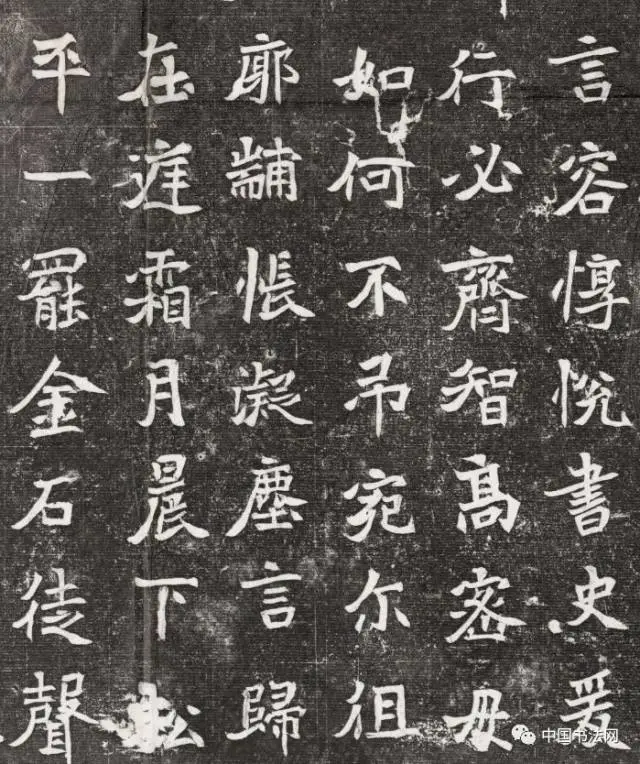 言容惇悅書史爰
行必齊智高密毋
如何不弔宛尔徂
廓黼悵凝塵言歸
在莚霜月晨下松
平一罷金石徒聲
中国书法网